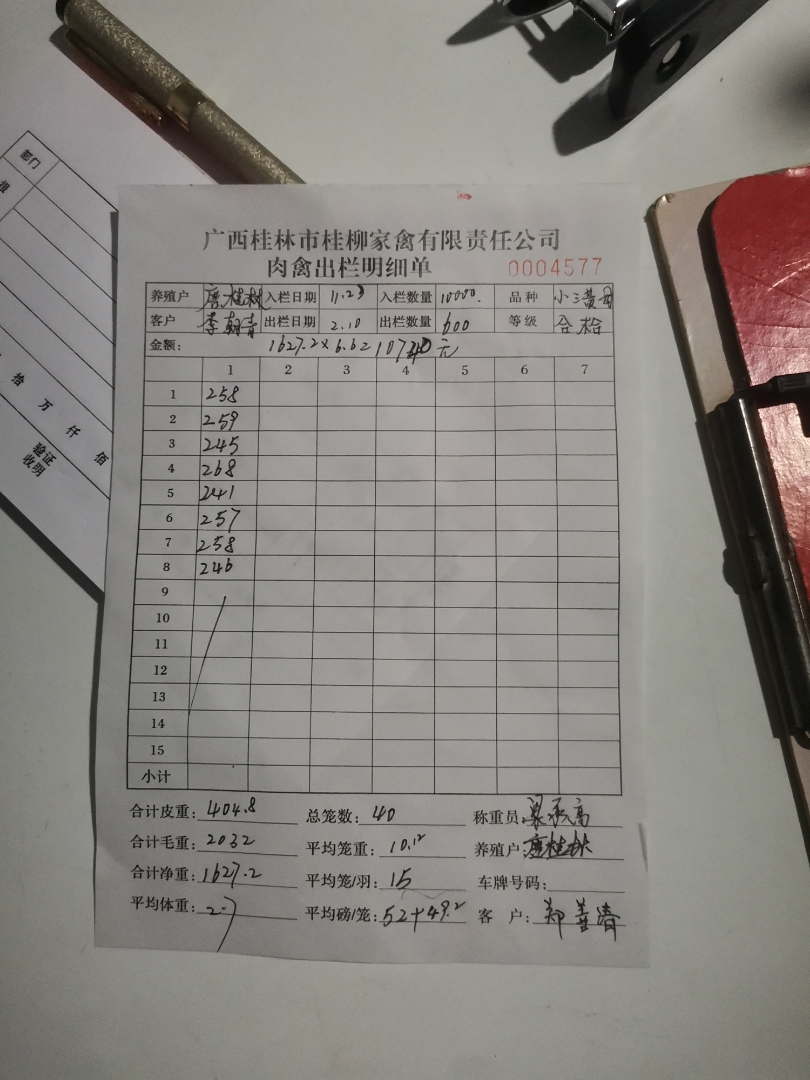 部门
广西桂林市桂柳家禽有限责任公司
肉禽出栏明细单 0004577
养殖户 唐桂林 入栏日期 11.23 入栏数量 10000. 品种 小三黄母
客户 李朝青 出栏日期 2.10 出栏数量 600 等级 合格
金额: 1627.2×6.6= 10740元
1 2 3 4 5 6 7
1 258
2 259
3 245
4 268
5 241
6 257
7 258
8 246
9
10
11
12
13
14
15
小计
合计皮重: 404.8 总笼数: 40 称重员:
合计毛重: 2032 平均笼重: 10.12 养殖户: 唐桂林
合计净重: 1627.2 平均笼/羽: 15 车牌号码:
平均体重: 2.7 平均磅/笼: 52+49.2 客 户: 郑善清
拾 万 仟 佰
验证
收明